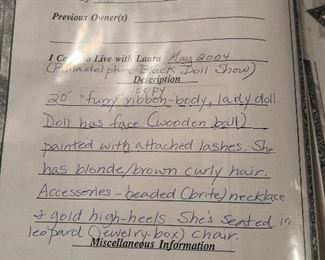 Previous Owner(s)
I Came to Live with Laura May 2004
(Philadelphia Black Doll Show)
Description
loopy
20" "furry" ribbon-body, lady doll.
Doll has face (wooden ball)
painted with attached lashes. She
has blonde/brown curly hair.
Accessories - beaded (brite) necklace
& gold high-heels. She's seated in
leopard (jewelry-box) chair.
Miscellaneous Information